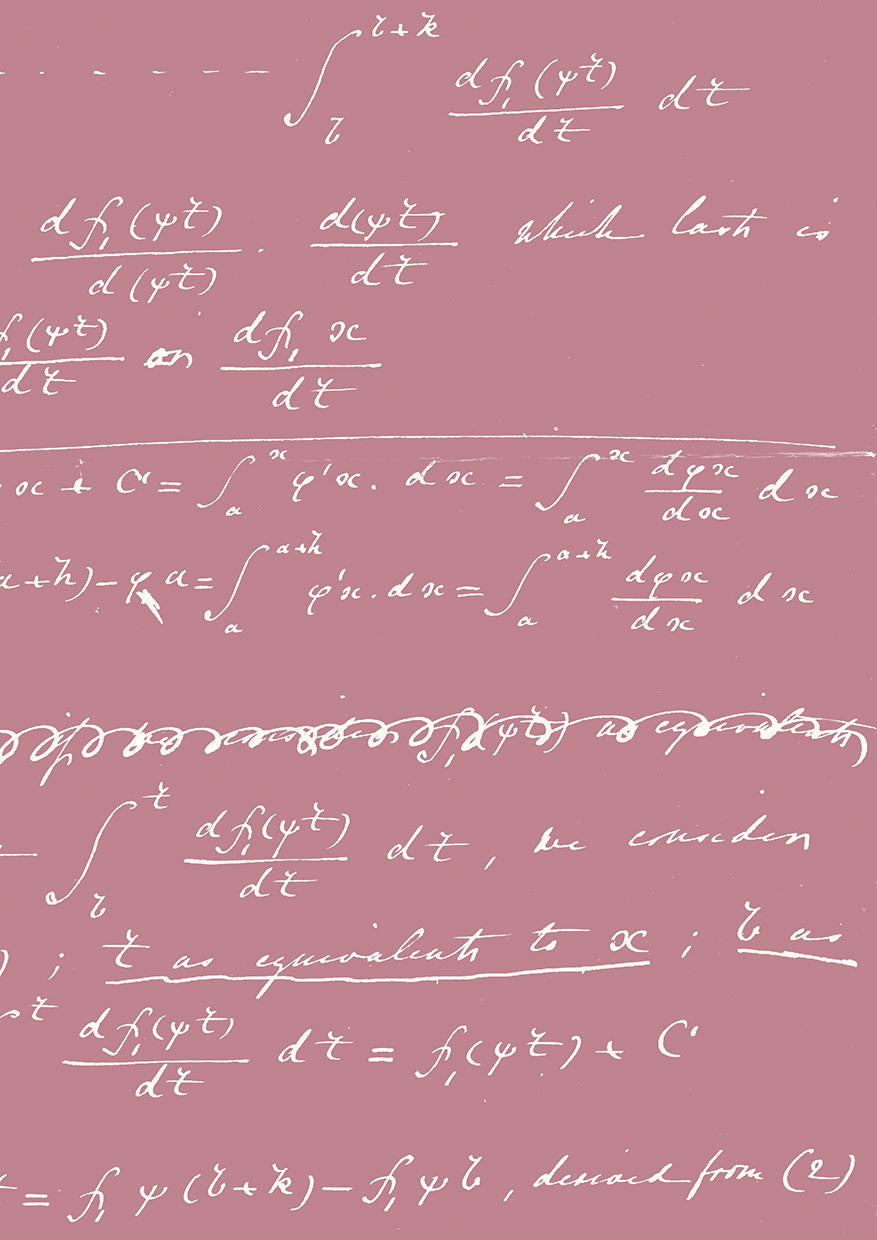 - - - - - - ∫_b^{b+k} df₁(ψt)/dt dt
df₁(ψt)/d(ψt) . d(ψt)/dt which last is
f₁(ψt)/dt or df₁ x/dt
x + C' = ∫_a^x φ'x . dx = ∫_a^x dφx/dx dx
a+h) - φ a = ∫_a^{a+h} φ'x . dx = ∫_a^{a+h} dφx/dx dx
f₁(ψt) as equivalent
∫_b^t df₁(ψt)/dt dt, we consider
) ; t as equivalent to x ; b as
t df₁(ψt)/dt dt = f₁(ψt) + C'
= f₁ ψ(b+k) - f₁ ψ b , derived from (2)